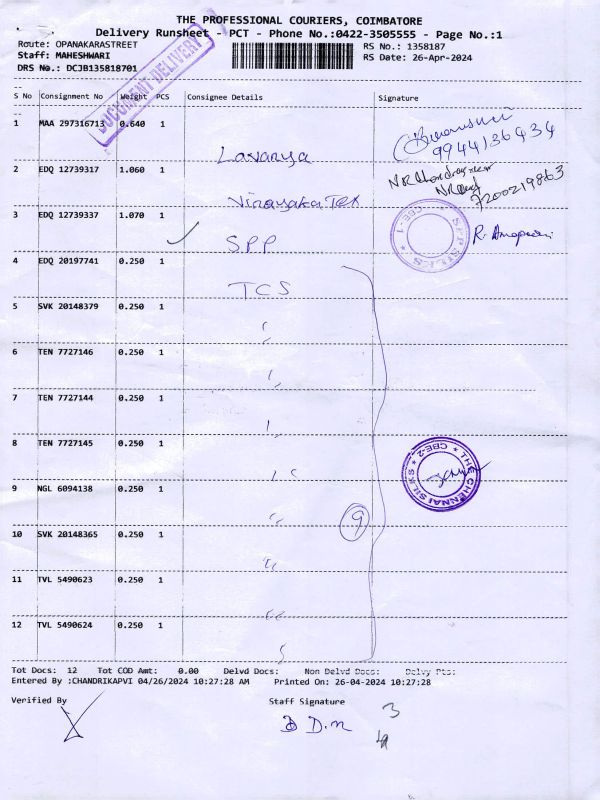 THE PROFESSIONAL COURIERS, COIMBATORE
Delivery Runsheet - PCT - Phone No.:0422-3505555 - Page No.:1
Route: OPANAKARASTREET
Staff: MAHESHWARI
DRS No.: DCJB135818701
RS No.: 1358187
RS Date: 26-Apr-2024
DOCUMENT DELIVERY
S No Consignment No Weight PCS Consignee Details Signature
1 MAA 297316713 0.640 1 Lavanya
9944136434
2 EDQ 12739317 1.060 1 Vinayaka Tex
7200219863
3 EDQ 12739337 1.070 1 SPP
CBE-1 * SPP SILKS *
4 EDQ 20197741 0.250 1 TCS
5 SVK 20148379 0.250 1
6 TEN 7727146 0.250 1
7 TEN 7727144 0.250 1
8 TEN 7727145 0.250 1
THE CHENNAI SILKS * CBE-2 *
9 NGL 6094138 0.250 1
9
10 SVK 20148365 0.250 1
11 TVL 5490623 0.250 1
12 TVL 5490624 0.250 1
Tot Docs: 12 Tot COD Amt: 0.00 Delvd Docs: Non Delvd Docs: Delvy Pts:
Entered By :CHANDRIKAPVI 04/26/2024 10:27:28 AM Printed On: 26-04-2024 10:27:28
Verified By
Staff Signature
3